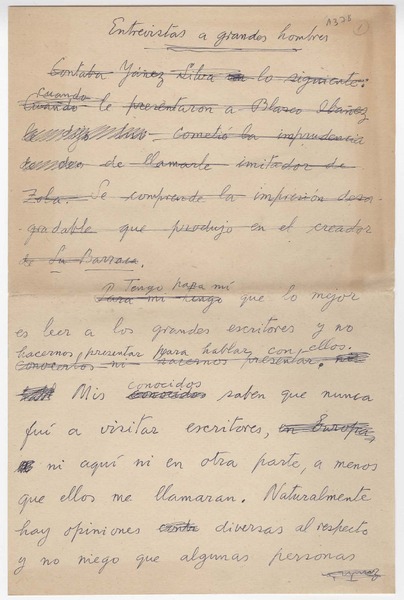 A328 1
Entrevistas a grandes hombres
Contaba Yánez Silva lo siguiente:
cuando
Cuando le presentaron a Blasco Ibáñez
cometió la imprudencia
de llamarle imitador de
Zola. Se comprende la impresión desa-
gradable que produjo en el creador
La Barraca.
P. Tengo para mí
Para mí tengo que lo mejor
es leer a los grandes escritores y no
hacernos presentar para hablar con ellos.
conocerlos ni hacernos presentar.
conocidos
Mis conocidos saben que nunca
fuí a visitar escritores, en Europa,
ni aquí ni en otra parte, a menos
que ellos me llamaran. Naturalmente
hay opiniones diversas al respecto
y no niego que algunas personas